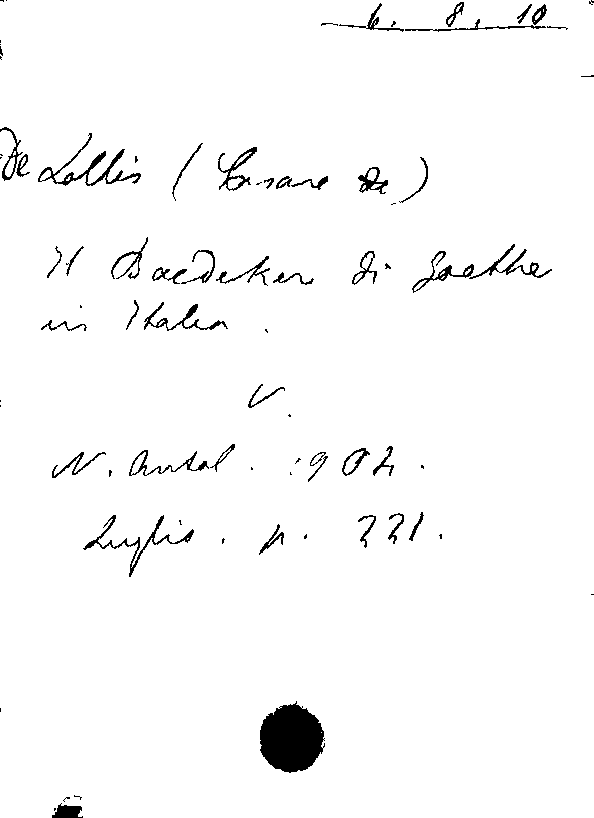 6. 8. 10
De Lollis (Cesare de)
Il Baedeker di Goethe
in Italia.
V.
N. Antol. 1902.
Luglio. p. 221.